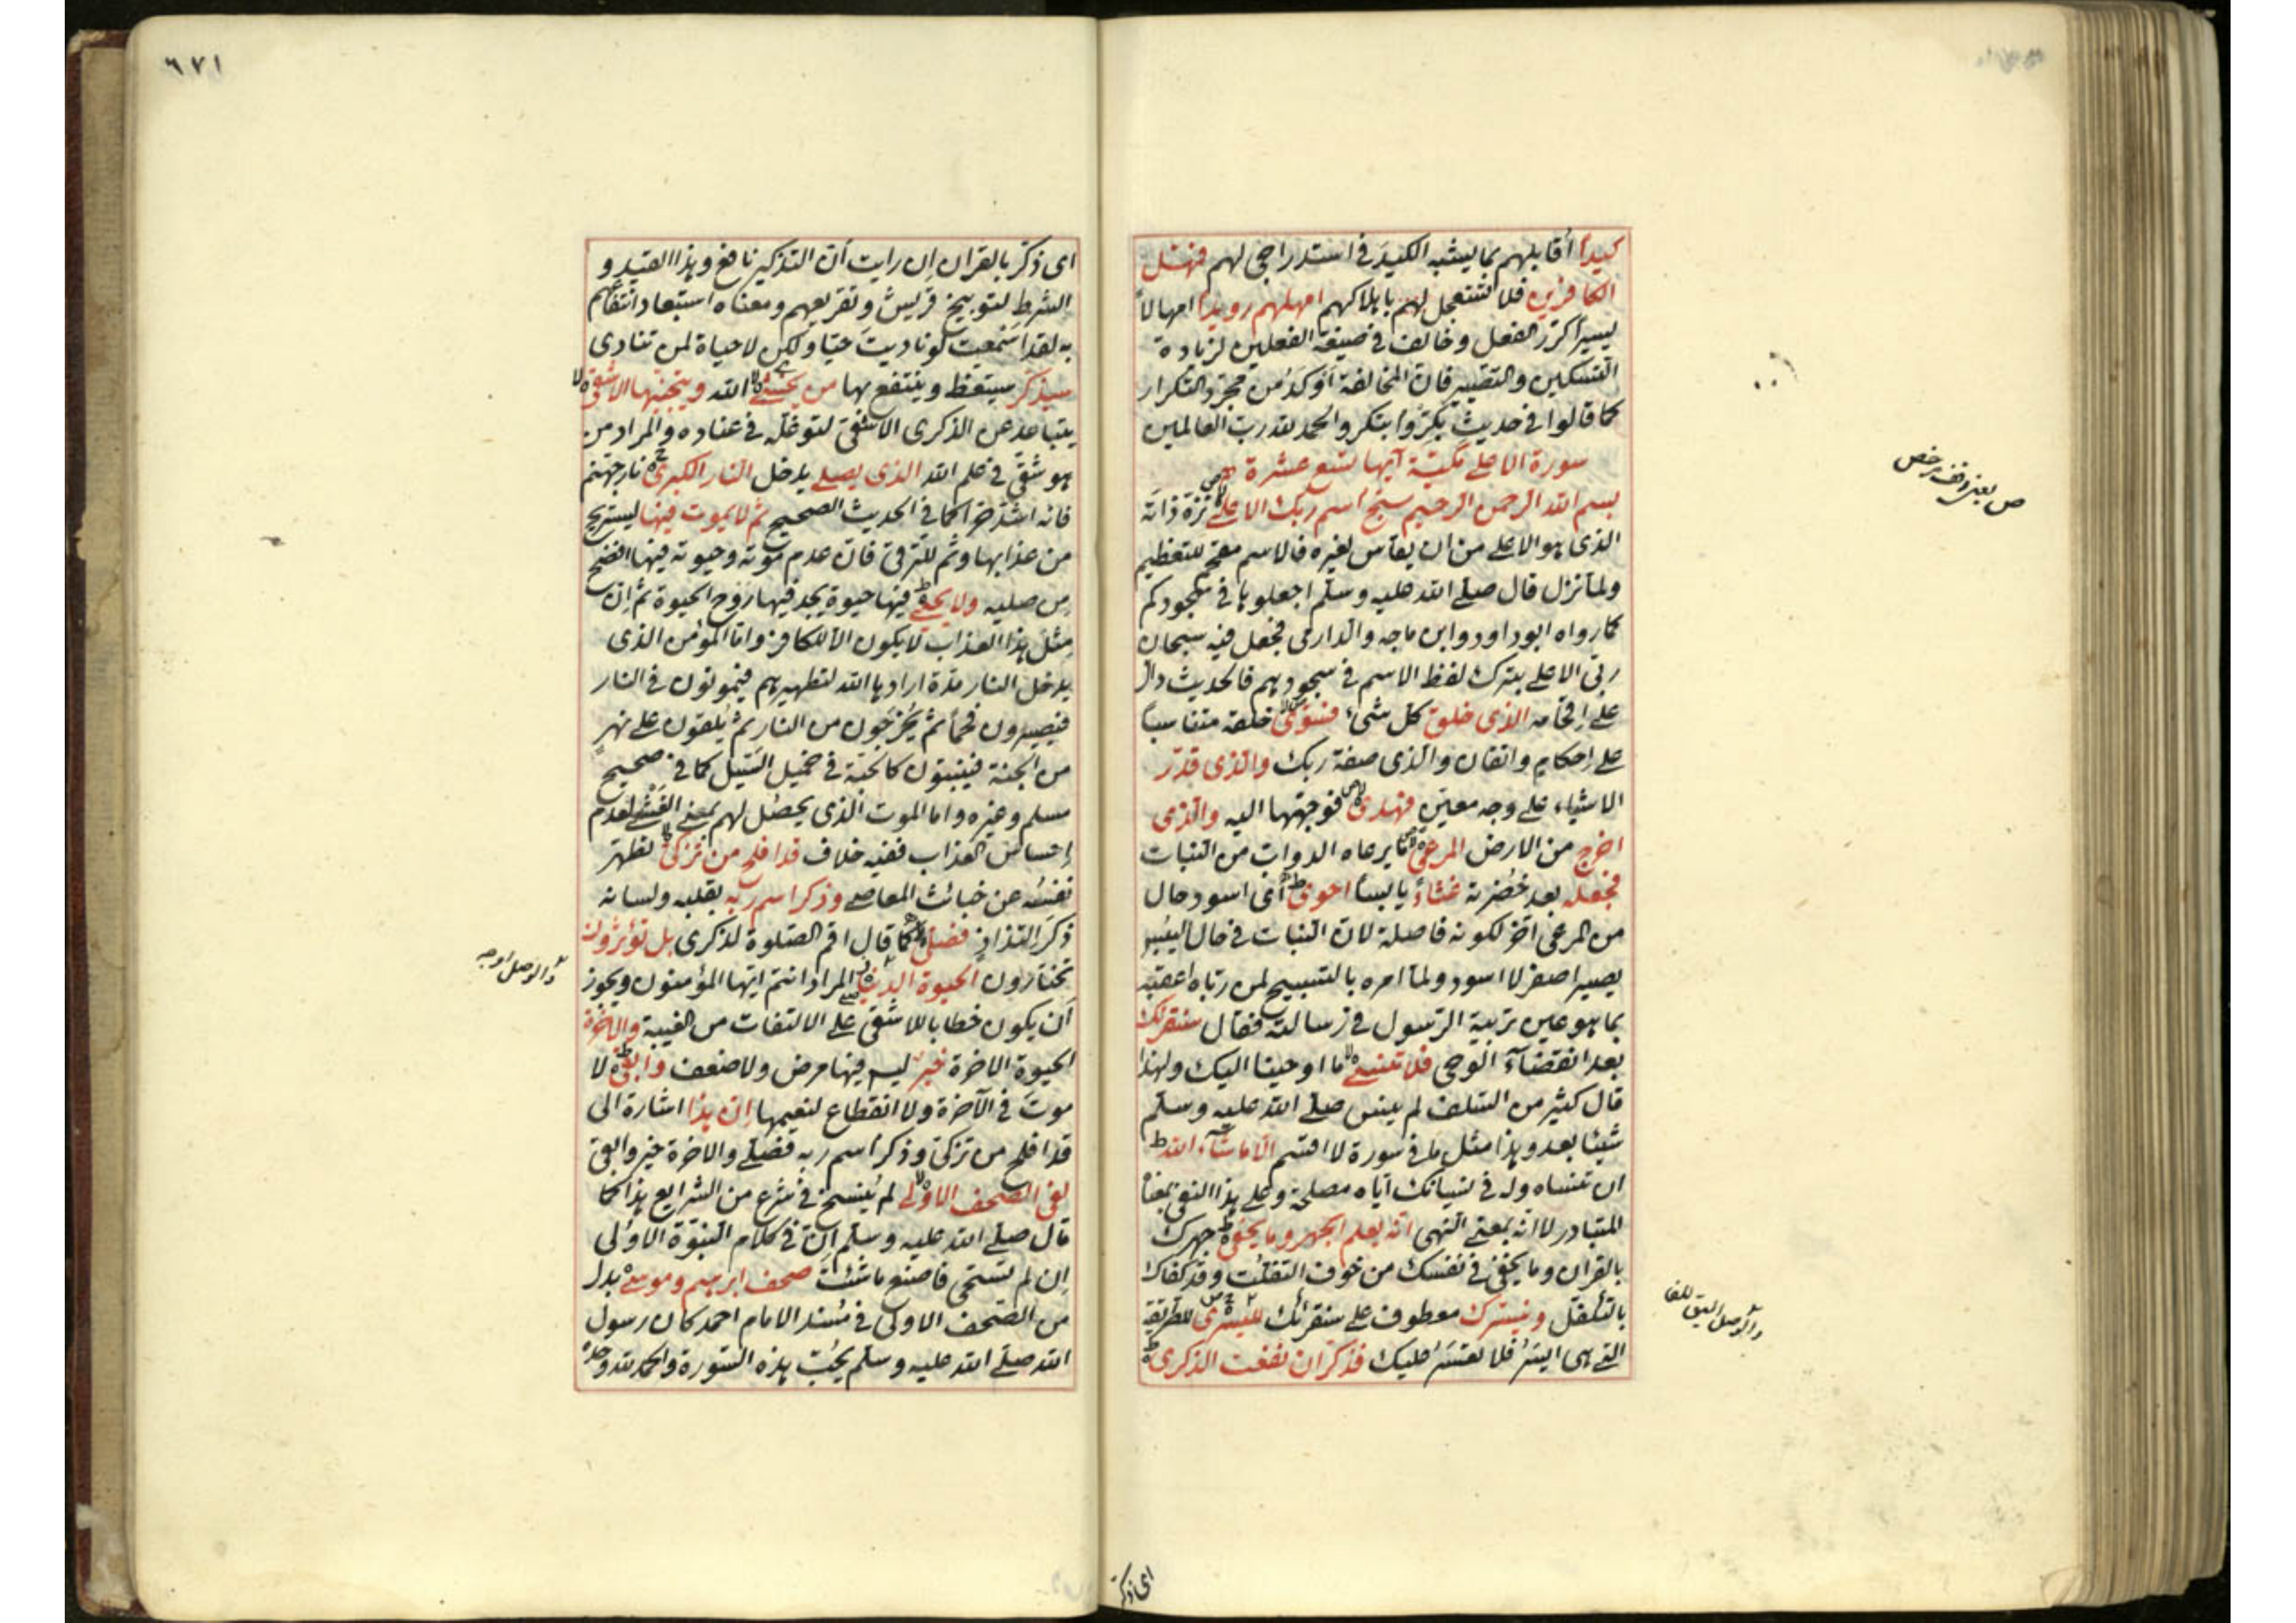 كيدا أقابلهم بما يشبه الكيد في استدراجي لهم فمهل
الكافرين فلا تستعجل لهم باهلاكهم امهلهم رويدا امهالا
يسيرا كرر الفعل وخالف في صيغة الفعلين لزيادة
التسكين والتصبير فان المخالفة أوكد من مجرد التكرار
كما قالوا في حديث بكروا ابتكر والحمد لله رب العالمين
سورة الاعلى مكية آيها تسع عشرة
بسم الله الرحمن الرحيم سبح اسم ربك الاعلى نزه ذاته
الذي هو الاعلى من ان يقاس لغيره فالاسم مقحم للتعظيم
ولما نزل قال صلى الله عليه وسلم اجعلوها في سجودكم
كما رواه ابو داود وابن ماجه والدارمي فجعل فيه سبحان
ربي الاعلى بترك لفظ الاسم في سجودهم فالحديث دال
على اقحامه الذي خلق كل شيء فسوى خلقه متناسبا
على احكام واتقان والذي صفة ربك والذي قدر
الاشياء على وجه معين فهدى فوجهها اليه والذي
اخرج من الارض المرعى ما يرعاه الدواب من النبات
فجعله بعد خضرته غثاء يابسا احوى اى اسود حال
من المرعى اخر لكونه فاصلة لان النبات في حال اليبس
يصير اصفر لا اسود ولما امره بالتسبيح لمن رباه اعقبه
بما هو عين تربية الرسول في رسالته فقال سنقرئك
بعد انقضاء الوحي فلا تنسى ما اوحينا اليك ولهذا
قال كثير من السلف لم ينس صلى الله عليه وسلم
شيئا بعد وهذا مثل ما في سورة لا اقسم الا ما شاء الله
ان تنساه وله في نسيانك اياه مصلحة وعلى هذا النفي بمعناه
المتبادر لا انه بمعنى النهي انه يعلم الجهر وما يخفى جهرك
بالقران وما يخفى في نفسك من خوف التفلت وقد كفاك
بالتكفل ونيسرك معطوف على سنقرئك لليسرى للطريقة
التي هي ايسر فلا تعتسر عليك فذكر ان نفعت الذكرى
ص يعني وقف مرخص
والوصل اليق للفا
اى ذكر
٦٧١
اى ذكر بالقران ان رايت ان التذكير نافع وهذا القيد و
الشرط لتوبيخ قريش وتقريعهم ومعناه استبعاد انتفاعهم
به لقد اسمعت لو ناديت حيا ولكن لا حياة لمن تنادى
سيذكر سيتعظ وينتفع بها من يخشى الله ويتجنبها الاشقى
يتباعد عن الذكرى الاشقى لتوغله في عناده والمراد من
هو شقي في علم الله الذي يصلى يدخل النار الكبرى نار جهنم
فانه اشد حرا كما في الحديث الصحيح ثم لا يموت فيها ليستريح
من عذابها وثم للترقي فان عدم موته وحيوته فيها افضح
من صليه ولا يحيى فيها حيوة يجد فيها روح الحيوة ثم ان
مثل هذا العذاب لا يكون الا للكافر واما المؤمن الذي
يدخل النار مدة ارادها الله لتطهيرهم فيموتون في النار
فيصيرون فحما ثم يخرجون من النار ثم يلقون على نهر
من الجنة فينبتون كالحبة في حميل السيل كما في صحيح
مسلم وغيره واما الموت الذي يحصل لهم بمعنى الغشي لعدم
احساس العذاب ففيه خلاف قد افلح من تزكى تطهر
نفسه عن خبائث المعاصي وذكر اسم ربه بقلبه ولسانه
ذكر التذاذ فصلى كما قال اقم الصلوة لذكرى بل تؤثرون
تختارون الحيوة الدنيا المراد انتم ايها المؤمنون ويجوز
ان يكون خطابا للاشقى على الالتفات من الغيبة والآخرة
الحيوة الاخرة خير ليس فيها مرض ولا ضعف وابقى لا
موت في الآخرة ولا انقطاع لنعيمها ان هذا اشارة الى
قد افلح من تزكى وذكر اسم ربه فصلى والاخرة خير وابقى
لفي الصحف الاولى لم ينسخ في شرع من الشرايع هذا كما
قال صلى الله عليه وسلم ان في كلام النبوة الاولى
ان لم تستحي فاصنع ما شئت صحف ابرهيم وموسى بدل
من الصحف الاولى في مسند الامام احمد كان رسول
الله صلى الله عليه وسلم يحب هذه السورة والحمد لله وحده
والوصل اوجه